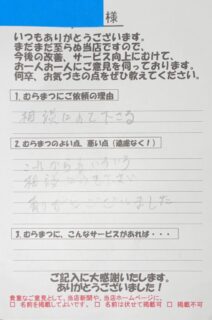 様
いつもありがとうございます。
まだまだ至らぬ当店ですので、
今後の改善、サービス向上にむけて、
お一人お一人にご意見を伺っております。
何卒、お気づきの点をぜひ教えてください。
1. むらまつにご依頼の理由
相談にのって下さる
2. むらまつのよい点、悪い点（遠慮なく！）
これからもいろいろ
相談
ありがとうございました
3. むらまつに、こんなサービスがあれば・・・
ご記入に大感謝いたします。
ありがとうございました！
貴重なご意見として、当店新聞や、当店ホームページに、
□ 名前を掲載してよいです。 □ 名前は伏せて掲載可 □ 掲載不可